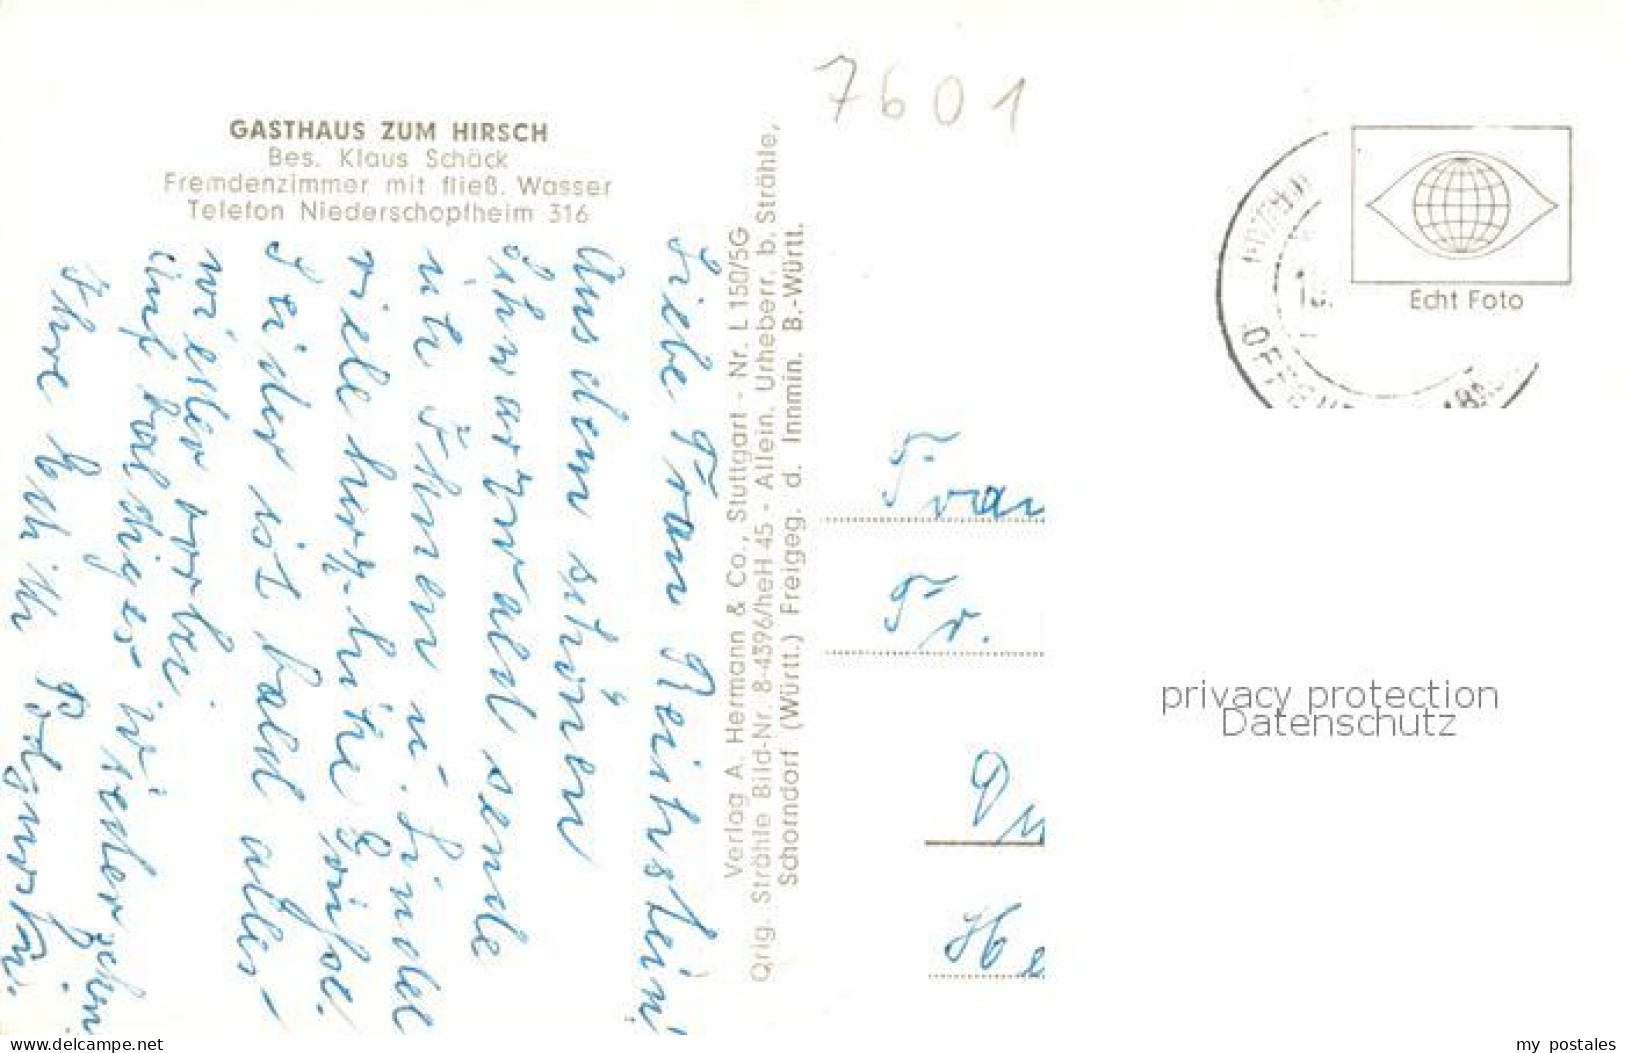 7601
GASTHAUS ZUM HIRSCH
Bes. Klaus Schäck
Fremdenzimmer mit fließ. Wasser
Telefon Niederschopfheim 316
Liebe Frau
Aus dem schönen
Schwarzwald sende
ich Ihnen u.
viele herzliche Grüße.
Leider ist bald alles
wieder vorbei.
Auf baldiges Wiedersehn
Ihre
Verlag A. Hermann & Co., Stuttgart - Nr. L 150/5G
Orig. Strähle Bild-Nr. 8-4396/heH 45 - Allein. Urheberr. b. Strähle,
Schorndorf (Württ.) Freigeg. d. Innmin. B.-Württ.
Echt Foto
Frau
Fr.
He
privacy protection
Datenschutz
www.delcampe.net
my_postales